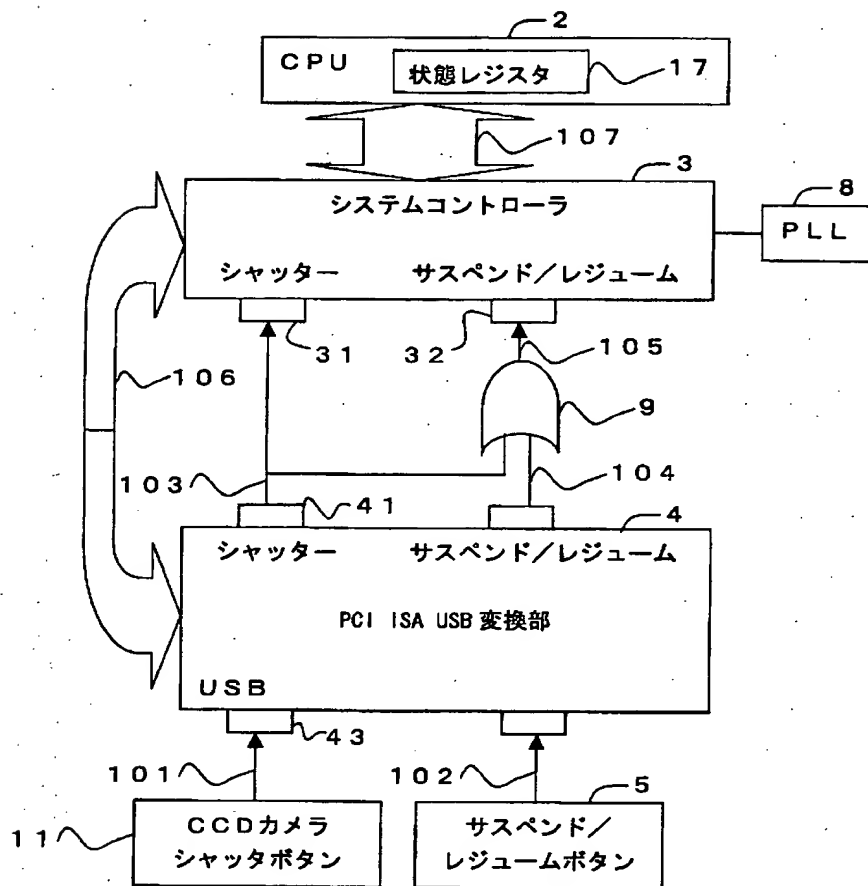 2
CPU
状態レジスタ
17
107
3
8
システムコントローラ
PLL
シャッター
サスペンド／レジューム
31
32
105
106
9
103
104
41
4
シャッター
サスペンド／レジューム
PCI ISA USB変換部
USB
43
101
102
5
11
CCDカメラ
シャッタボタン
サスペンド／
レジュームボタン